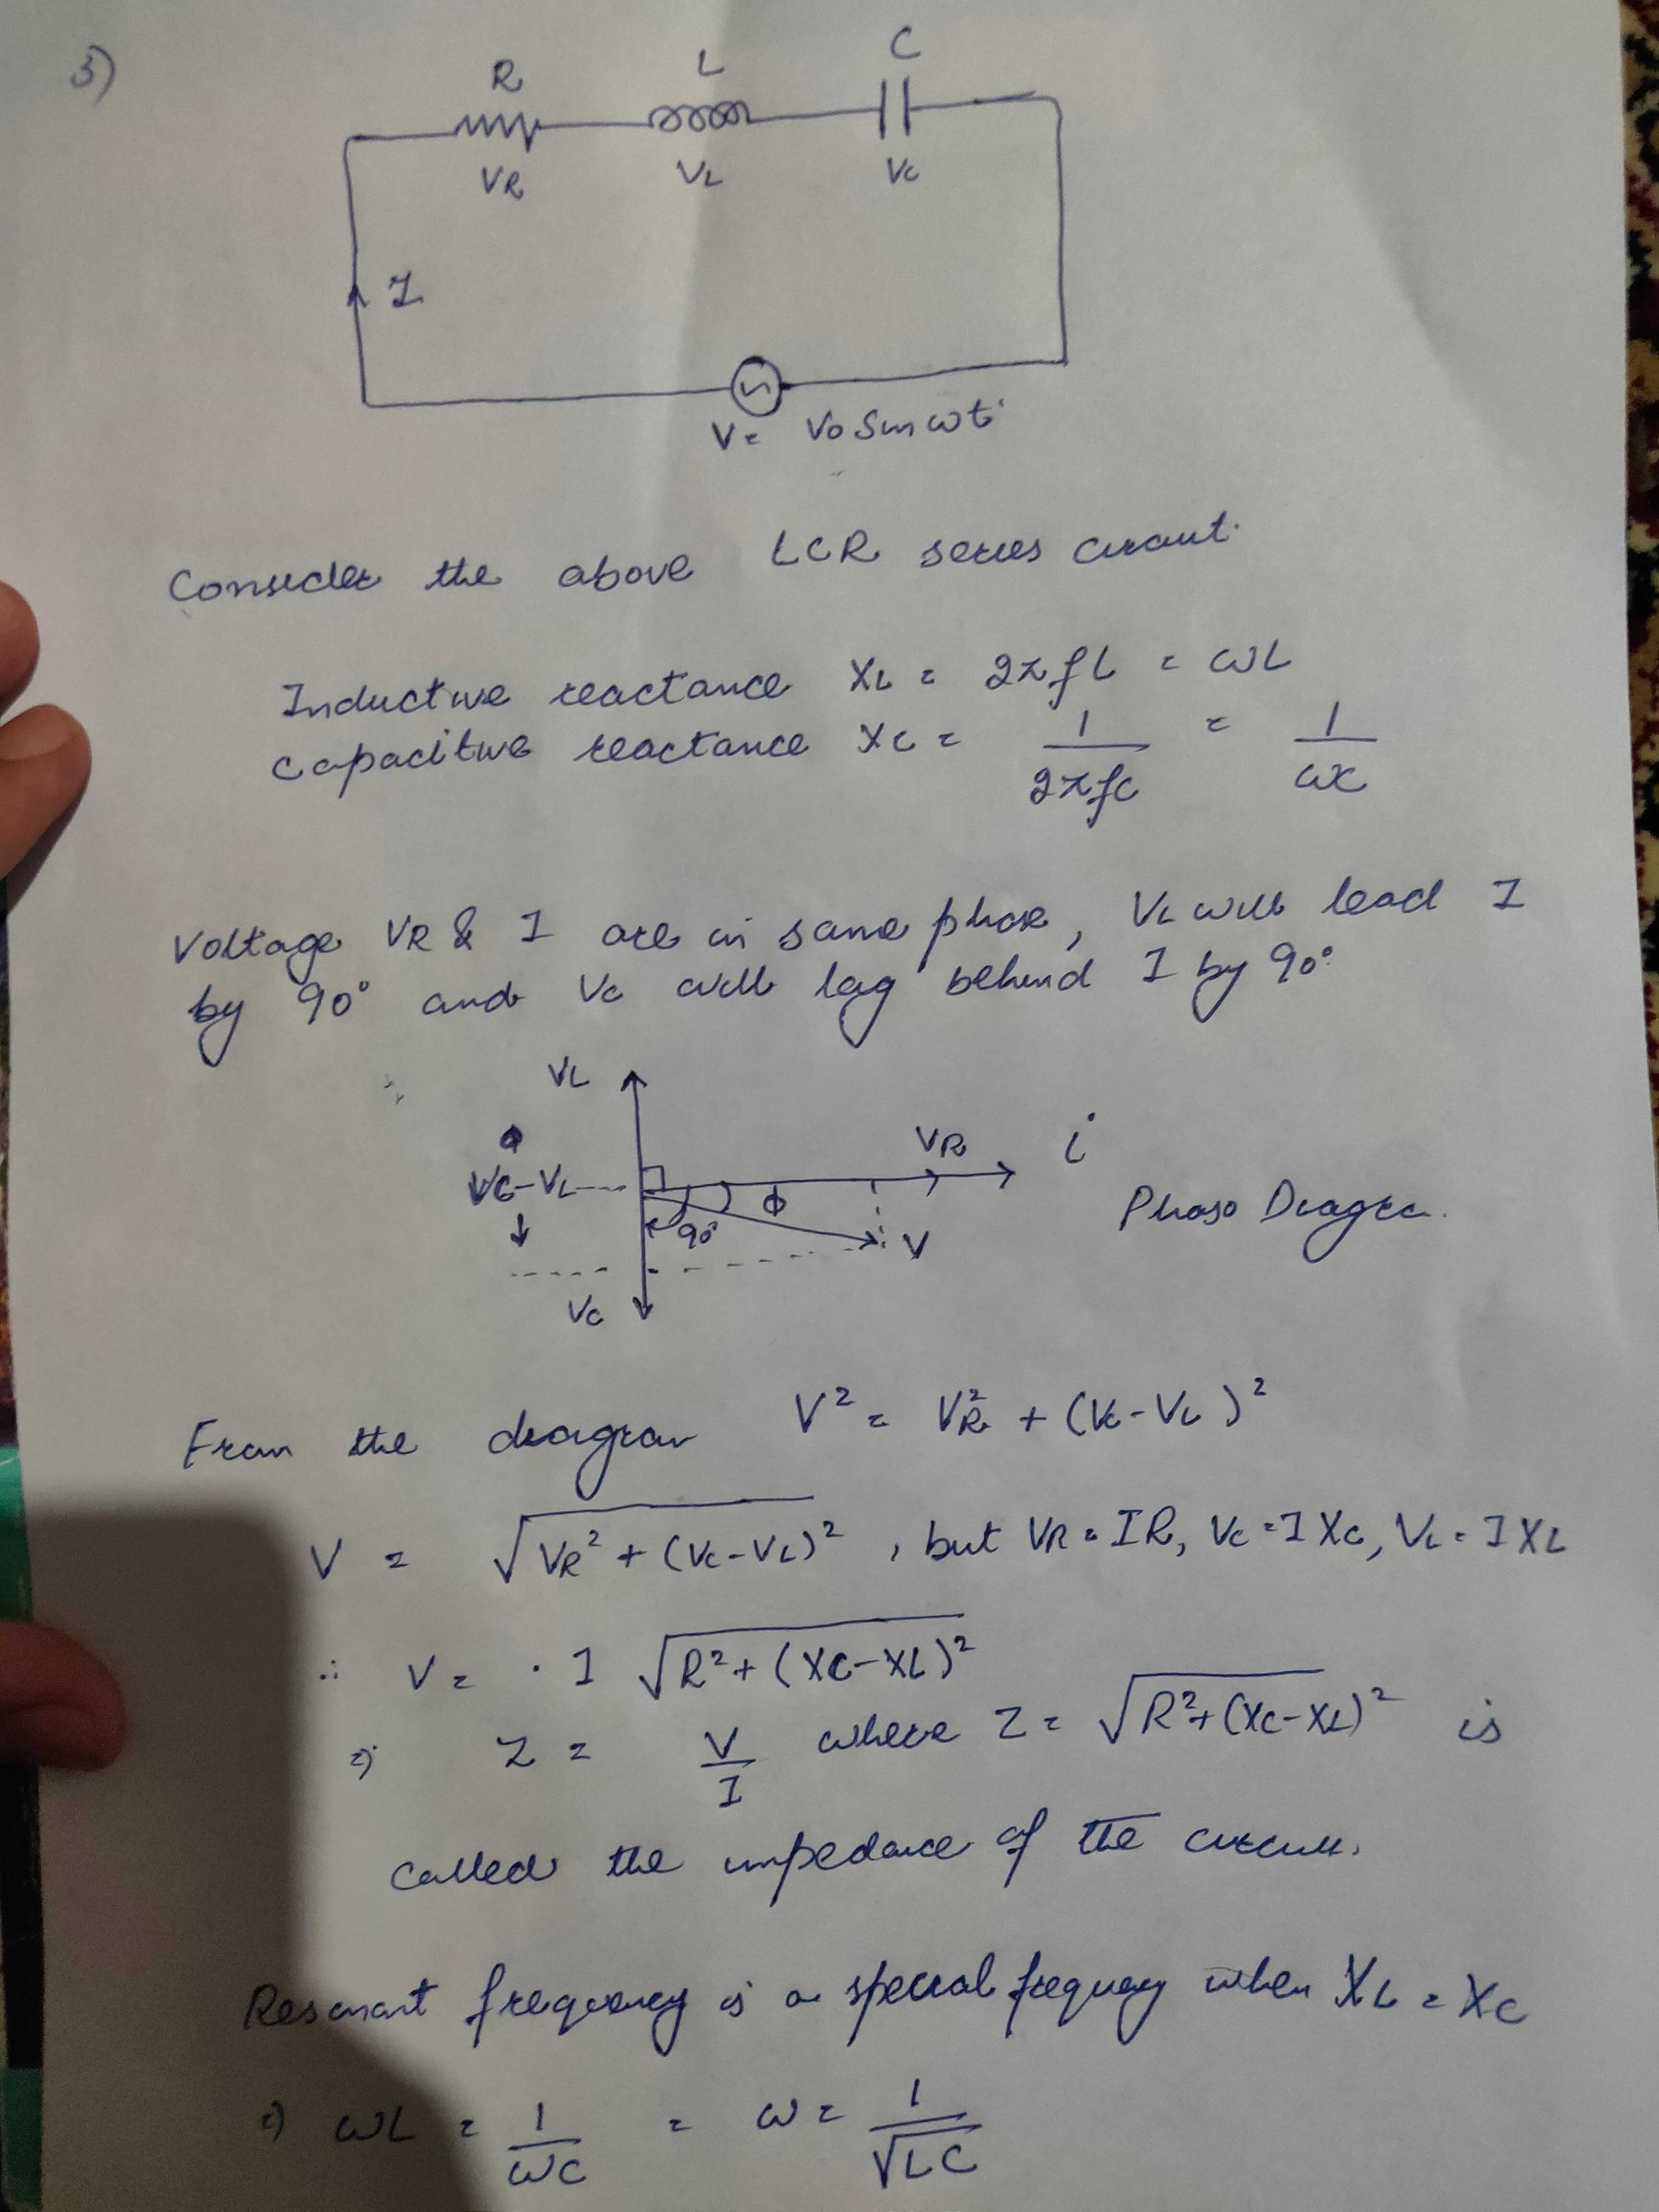 3)
R L C
VR VL VC
I
V = V0 Sin ωt
Consider the above LCR series circuit.
Inductive reactance XL = 2πfL = ωL
Capacitive reactance XC = 1/2πfC = 1/ωC
Voltage VR & I are in same phase, VL will lead I
by 90° and VC will lag behind I by 90°
VL
VR i
VC-VL
φ
90°
V
Phaso Diagra
VC
From the diagram V² = VR² + (VC-VL)²
V = √VR² + (VC-VL)² , but VR = IR, VC = IXC, VL = IXL
∴ V = I √R² + (XC-XL)²
⇒ Z = V/I where Z = √R²+(XC-XL)² is
called the impedance of the circuit.
Resonant frequency is a special frequency when XL = XC
⇒ ωL = 1/ωC = ω = 1/√LC